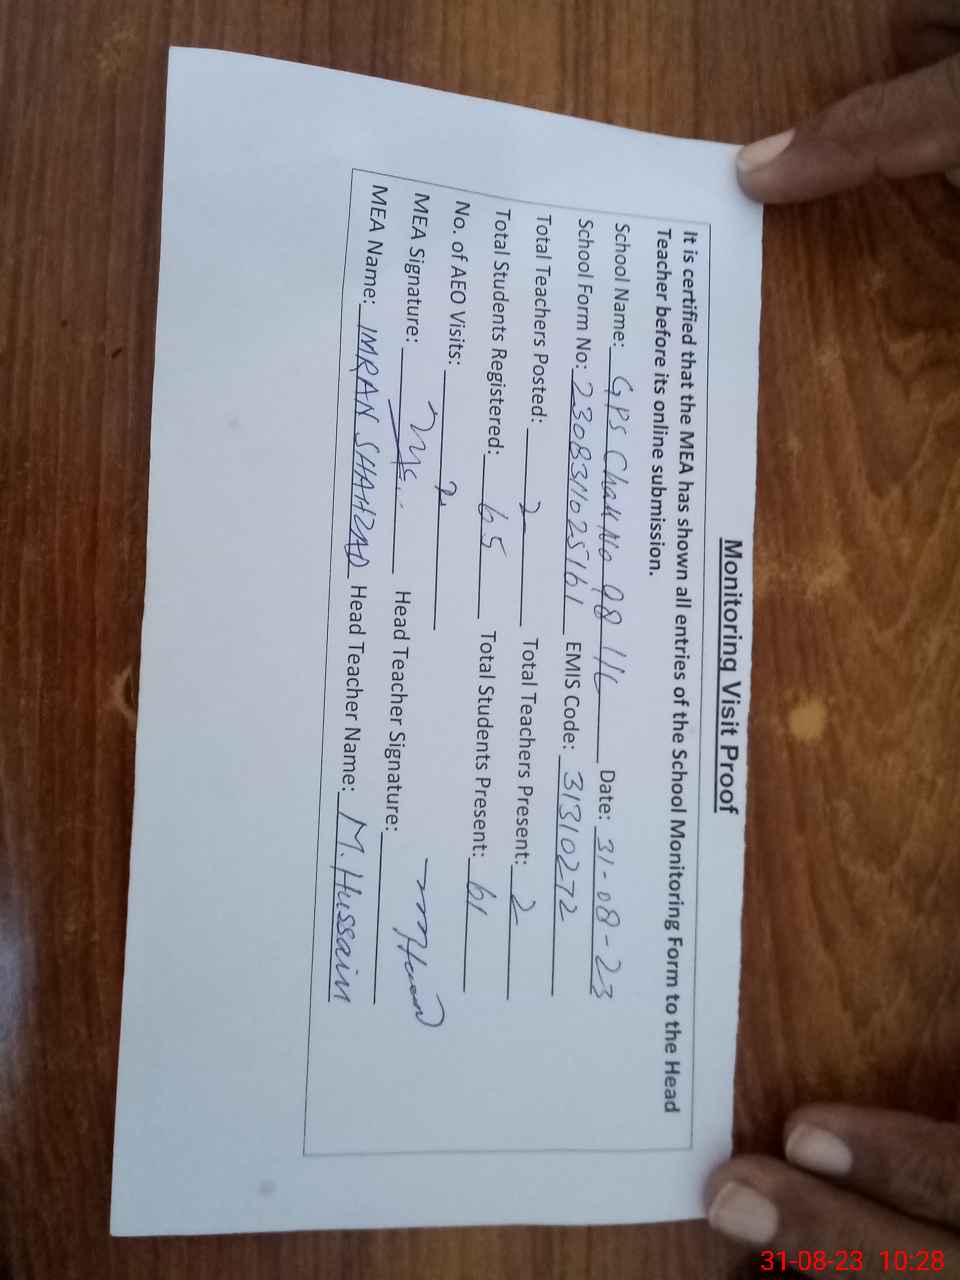 Monitoring Visit Proof
It is certified that the MEA has shown all entries of the School Monitoring Form to the Head
Teacher before its online submission.
School Name: GPS Chak No 98 1/L Date: 31-08-23
School Form No: 230831025161 EMIS Code: 31310272
Total Teachers Posted: 2 Total Teachers Present: 2
Total Students Registered: 65 Total Students Present: 61
No. of AEO Visits: 2
MEA Signature: Head Teacher Signature:
MEA Name: IMRAN SHAHZAD Head Teacher Name: M. Hussain
31-08-23 10:28